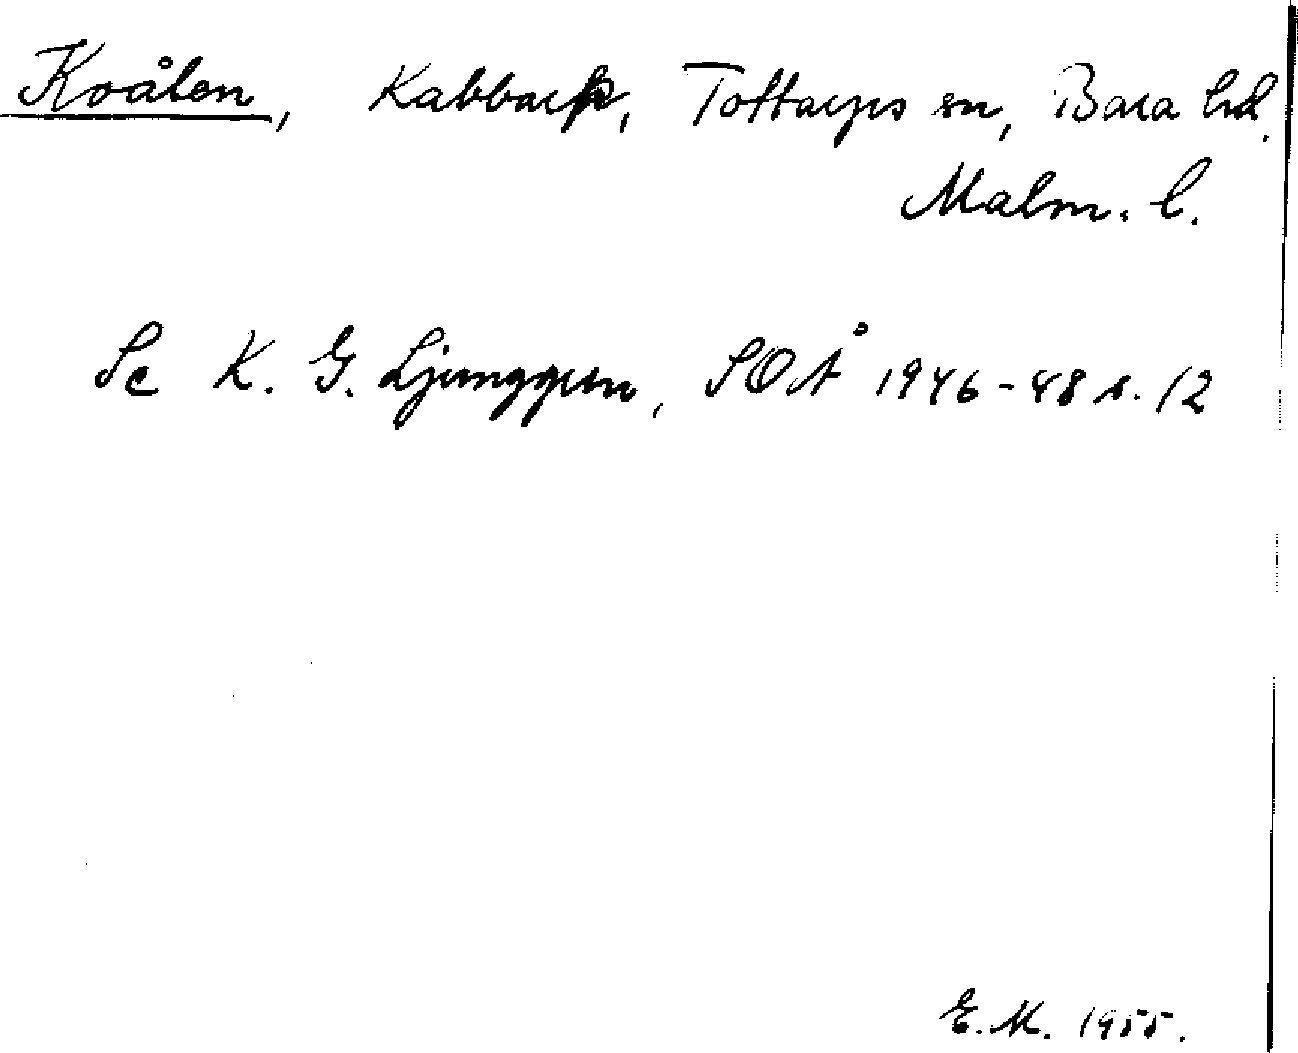 Kvålen, Kabbarp, Tottarps sn, Bara hd.
Malm. l.
Se K. G. Ljunggren, SOÅ 1946-48 s. 12
E. M. 1955.